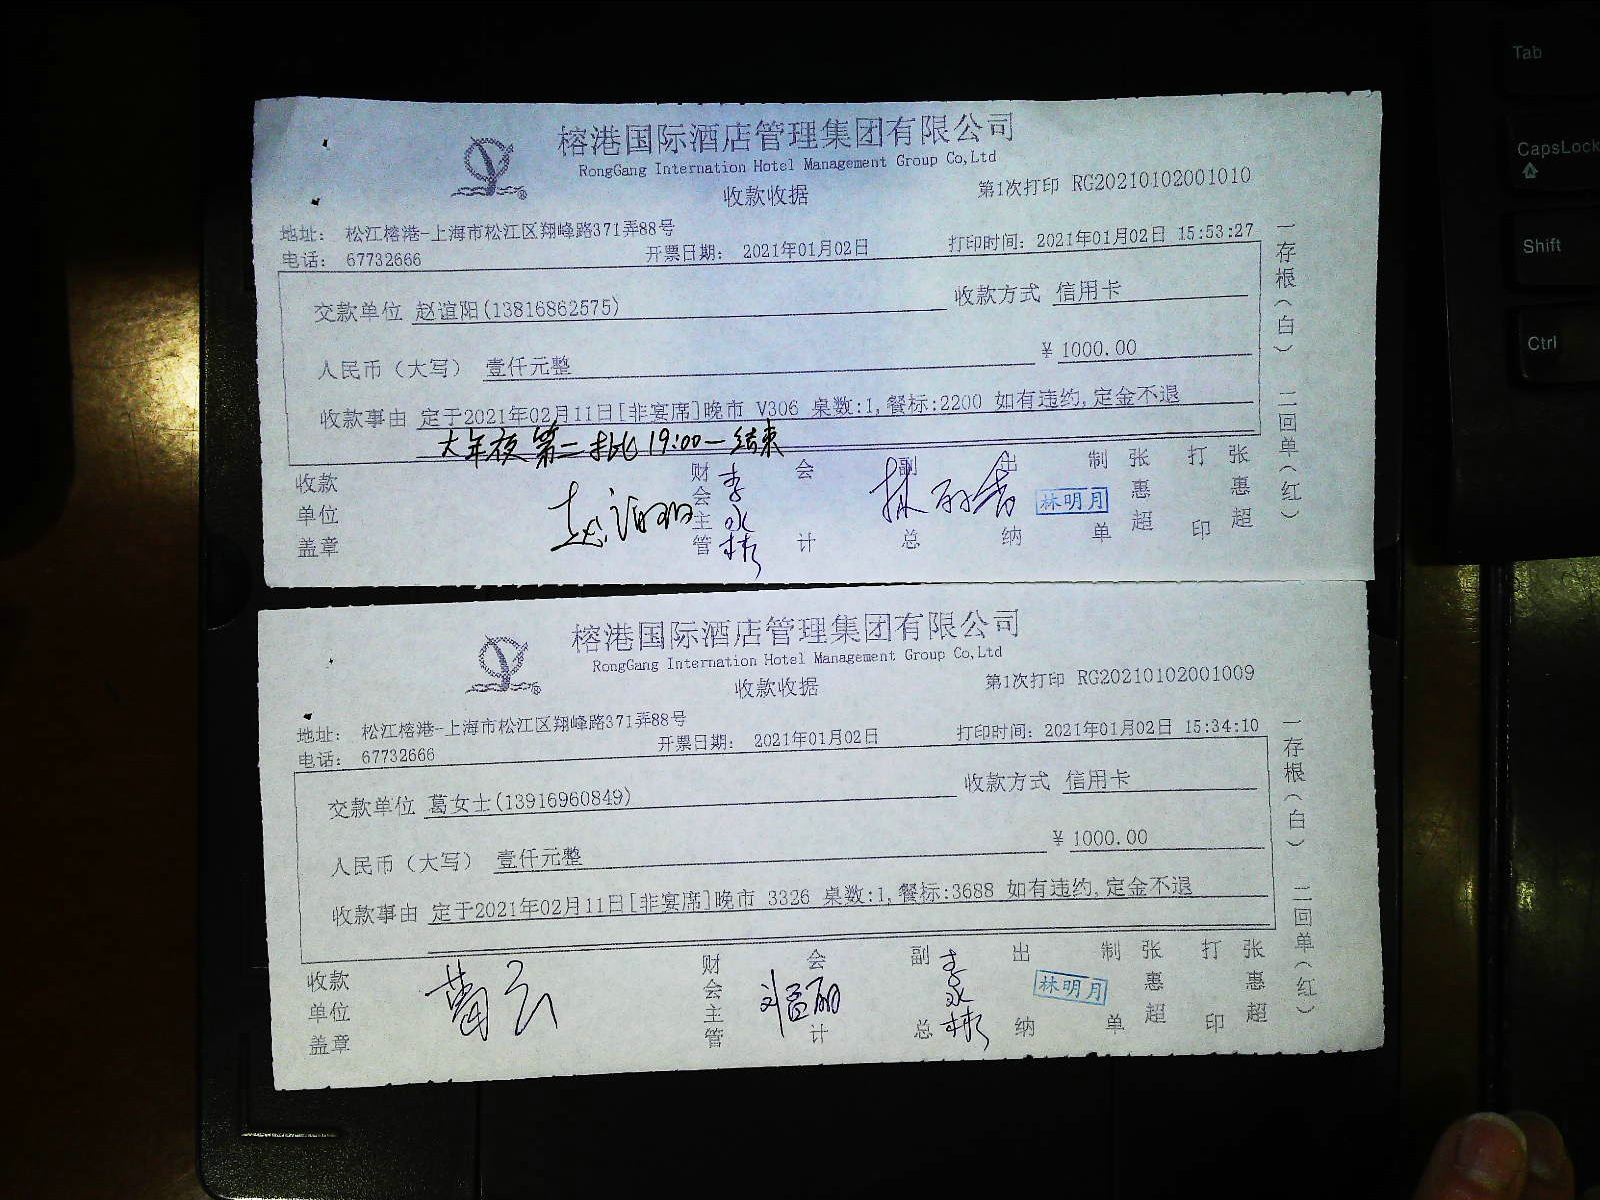 榕港国际酒店管理集团有限公司
RongGang Internation Hotel Management Group Co,Ltd
收款收据
第1次打印 RG20210102001010
地址： 松江榕港-上海市松江区翔峰路371弄88号
电话： 67732666
开票日期： 2021年01月02日
打印时间：2021年01月02日 15:53:27
交款单位 赵谊阳(13816862575)
收款方式 信用卡
人民币（大写） 壹仟元整
¥ 1000.00
收款事由 定于2021年02月11日[非宴席]晚市 V306 桌数:1,餐标:2200 如有违约,定金不退
大年夜第二批19:00—结束
收款单位盖章
财会主管 李永彬
会计
副总 林丽香
出纳 林明月
制单 张惠超
打印 张惠超
一存根（白） 二回单（红）
榕港国际酒店管理集团有限公司
RongGang Internation Hotel Management Group Co,Ltd
收款收据
第1次打印 RG20210102001009
地址： 松江榕港-上海市松江区翔峰路371弄88号
电话： 67732666
开票日期： 2021年01月02日
打印时间：2021年01月02日 15:34:10
交款单位 葛女士(13916960849)
收款方式 信用卡
人民币（大写） 壹仟元整
¥ 1000.00
收款事由 定于2021年02月11日[非宴席]晚市 3326 桌数:1,餐标:3688 如有违约,定金不退
收款单位盖章
财会主管
会计
副总 李永彬
出纳 林明月
制单 张惠超
打印 张惠超
一存根（白） 二回单（红）
Tab
CapsLock
Shift
Ctrl